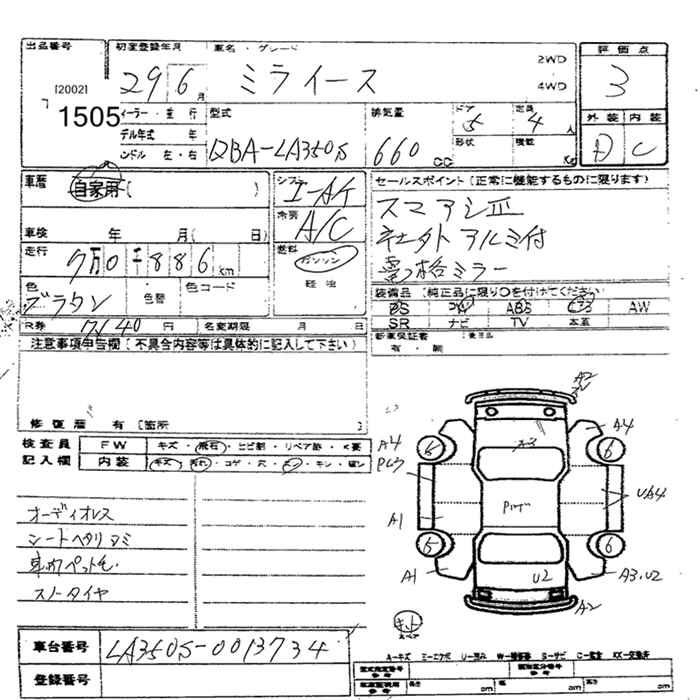 出品番号 初度登録年月 車名・グレード 評価点
[2002] 29 6月 ミライース 2WD 4WD 3
1505 ィーラー・並行 型式 排気量 ドア 5 定員 4人 外装 内装
デル年式 年 形状 積載 Kg
ンドル 左・右 DBA-LA350S 660 CC D C
車歴 自家用 ( ) シフト I-AT セールスポイント(正常に機能するものに限ります)
冷房 A/C スマアシⅢ
車検 年 月( 日) 社外アルミ付
走行 7万0千886km 燃料 ガソリン 軽油 電格ミラー
色 ブラウン 色替 色コード 装備品(純正品に限り○を付けてください)
PS PW ABS エアB AW
R券 円 名変期限 月 日 SR ナビ TV 本革
注意事項申告欄(不具合内容等は具体的に記入して下さい) 新車保証書 有・無
修復歴 有[箇所 ]
検査員 FW キズ・飛石・ヒビ割・リペア跡・X要
記入欄 内装 キズ・汚れ・コゲ・穴
A2
A4
A3
A4
6 6
UA4
A1
5 6
A1 U2 A3.U2
A2
オーディオレス
シートヘタリ
車内ペット毛
スノータイヤ
キット
スペア
A-キズ U-凹み S-サビ
車台番号 LA350S-0013734
登録番号 長さ cm 幅 cm 高さ cm